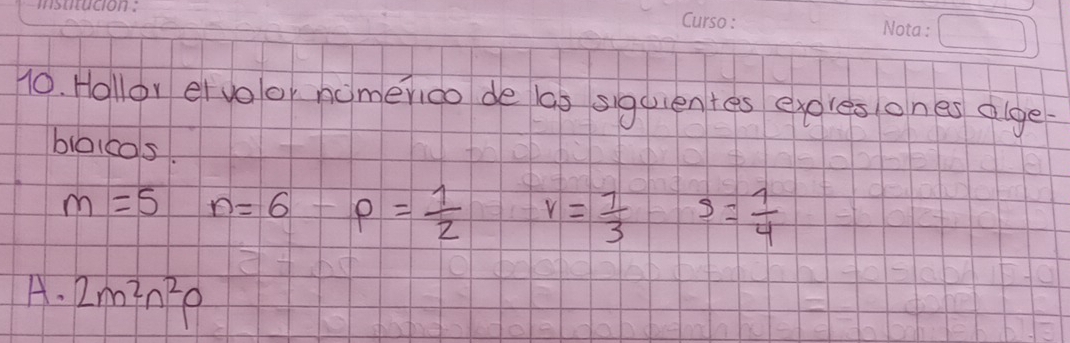 Institución:
Curso:
Nota:
10. Hallar el valor númerico de las siguientes expresiones alge-
braicas.
m = 5 n = 6 p = 1/2 r = 1/3 s = 1/4
A. 2m²n²p